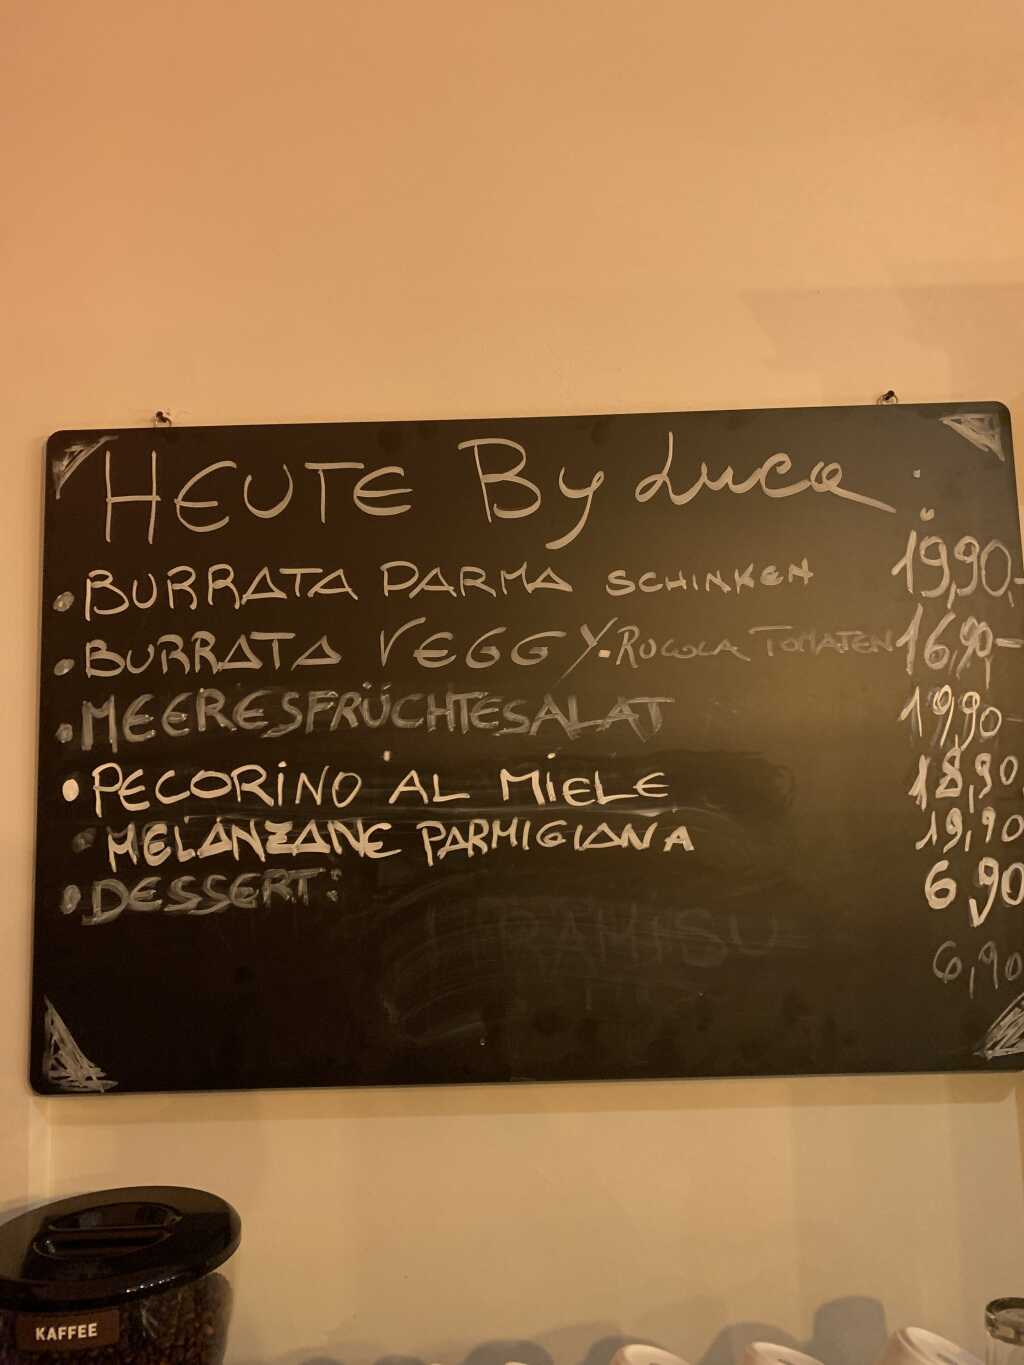 HEUTE By Luca :
• BURRATA PARMA SCHINKEN 19,90-
• BURRATA VEGGY-RUCOLA TOMATEN 16,90-
• MEERESFRÜCHTESALAT 19,90-
• PECORINO AL MIELE 18,90
• MELANZANE PARMIGIANA 19,90
• DESSERT: 6,90
TIRAMISU 6,90
KAFFEE